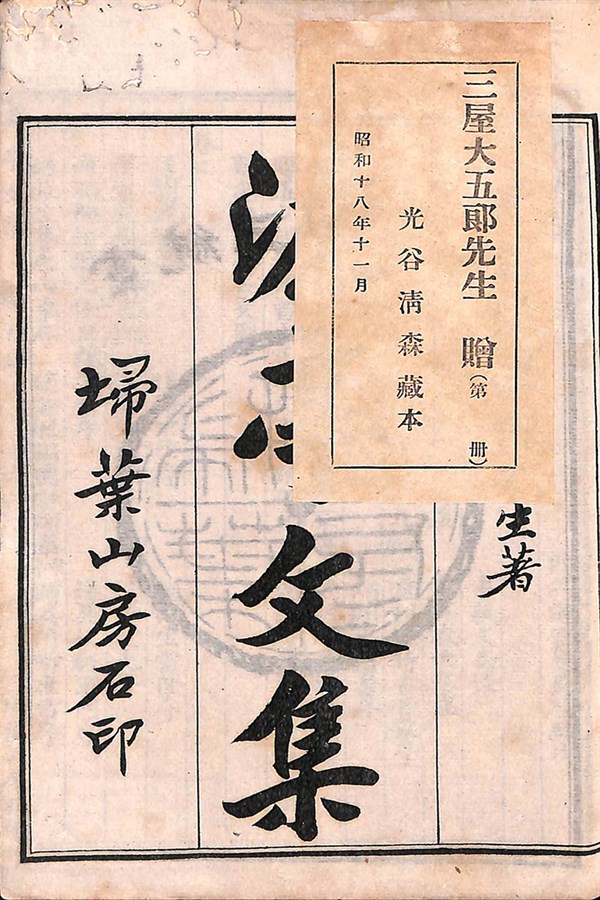 三屋大五郎先生 贈(第 冊)
光谷清森藏本
昭和十八年十一月
生著
文集
埽葉山房石印